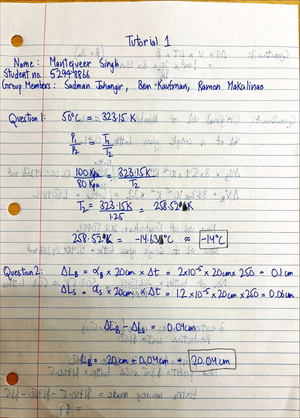 Tutorial 1
Name: Manteqveer Singh
Student no. 529448866
Group Members: Sadman Jahangir, Ben Kaufman, Ramon Makalinao
Question 1: 50°C = 323.15 K
P₁/P₂ = T₁/T₂
100 Kpa / 80 Kpa = 323.15K / T₂
T₂ = 323.15K / 1.25 = 258.52 K
258.52 K = -14.63°C ≈ -14°C
Question 2: ΔL_B = α_B × 20cm × Δt = 2×10⁻⁵ × 20cm × 250 = 0.1cm
ΔL_S = α_S × 20cm × Δt = 1.2 × 10⁻⁵ × 20cm × 250 = 0.06cm
ΔL_B - ΔL_S = 0.04cm
L_B = 20cm + 0.04cm = 20.04cm